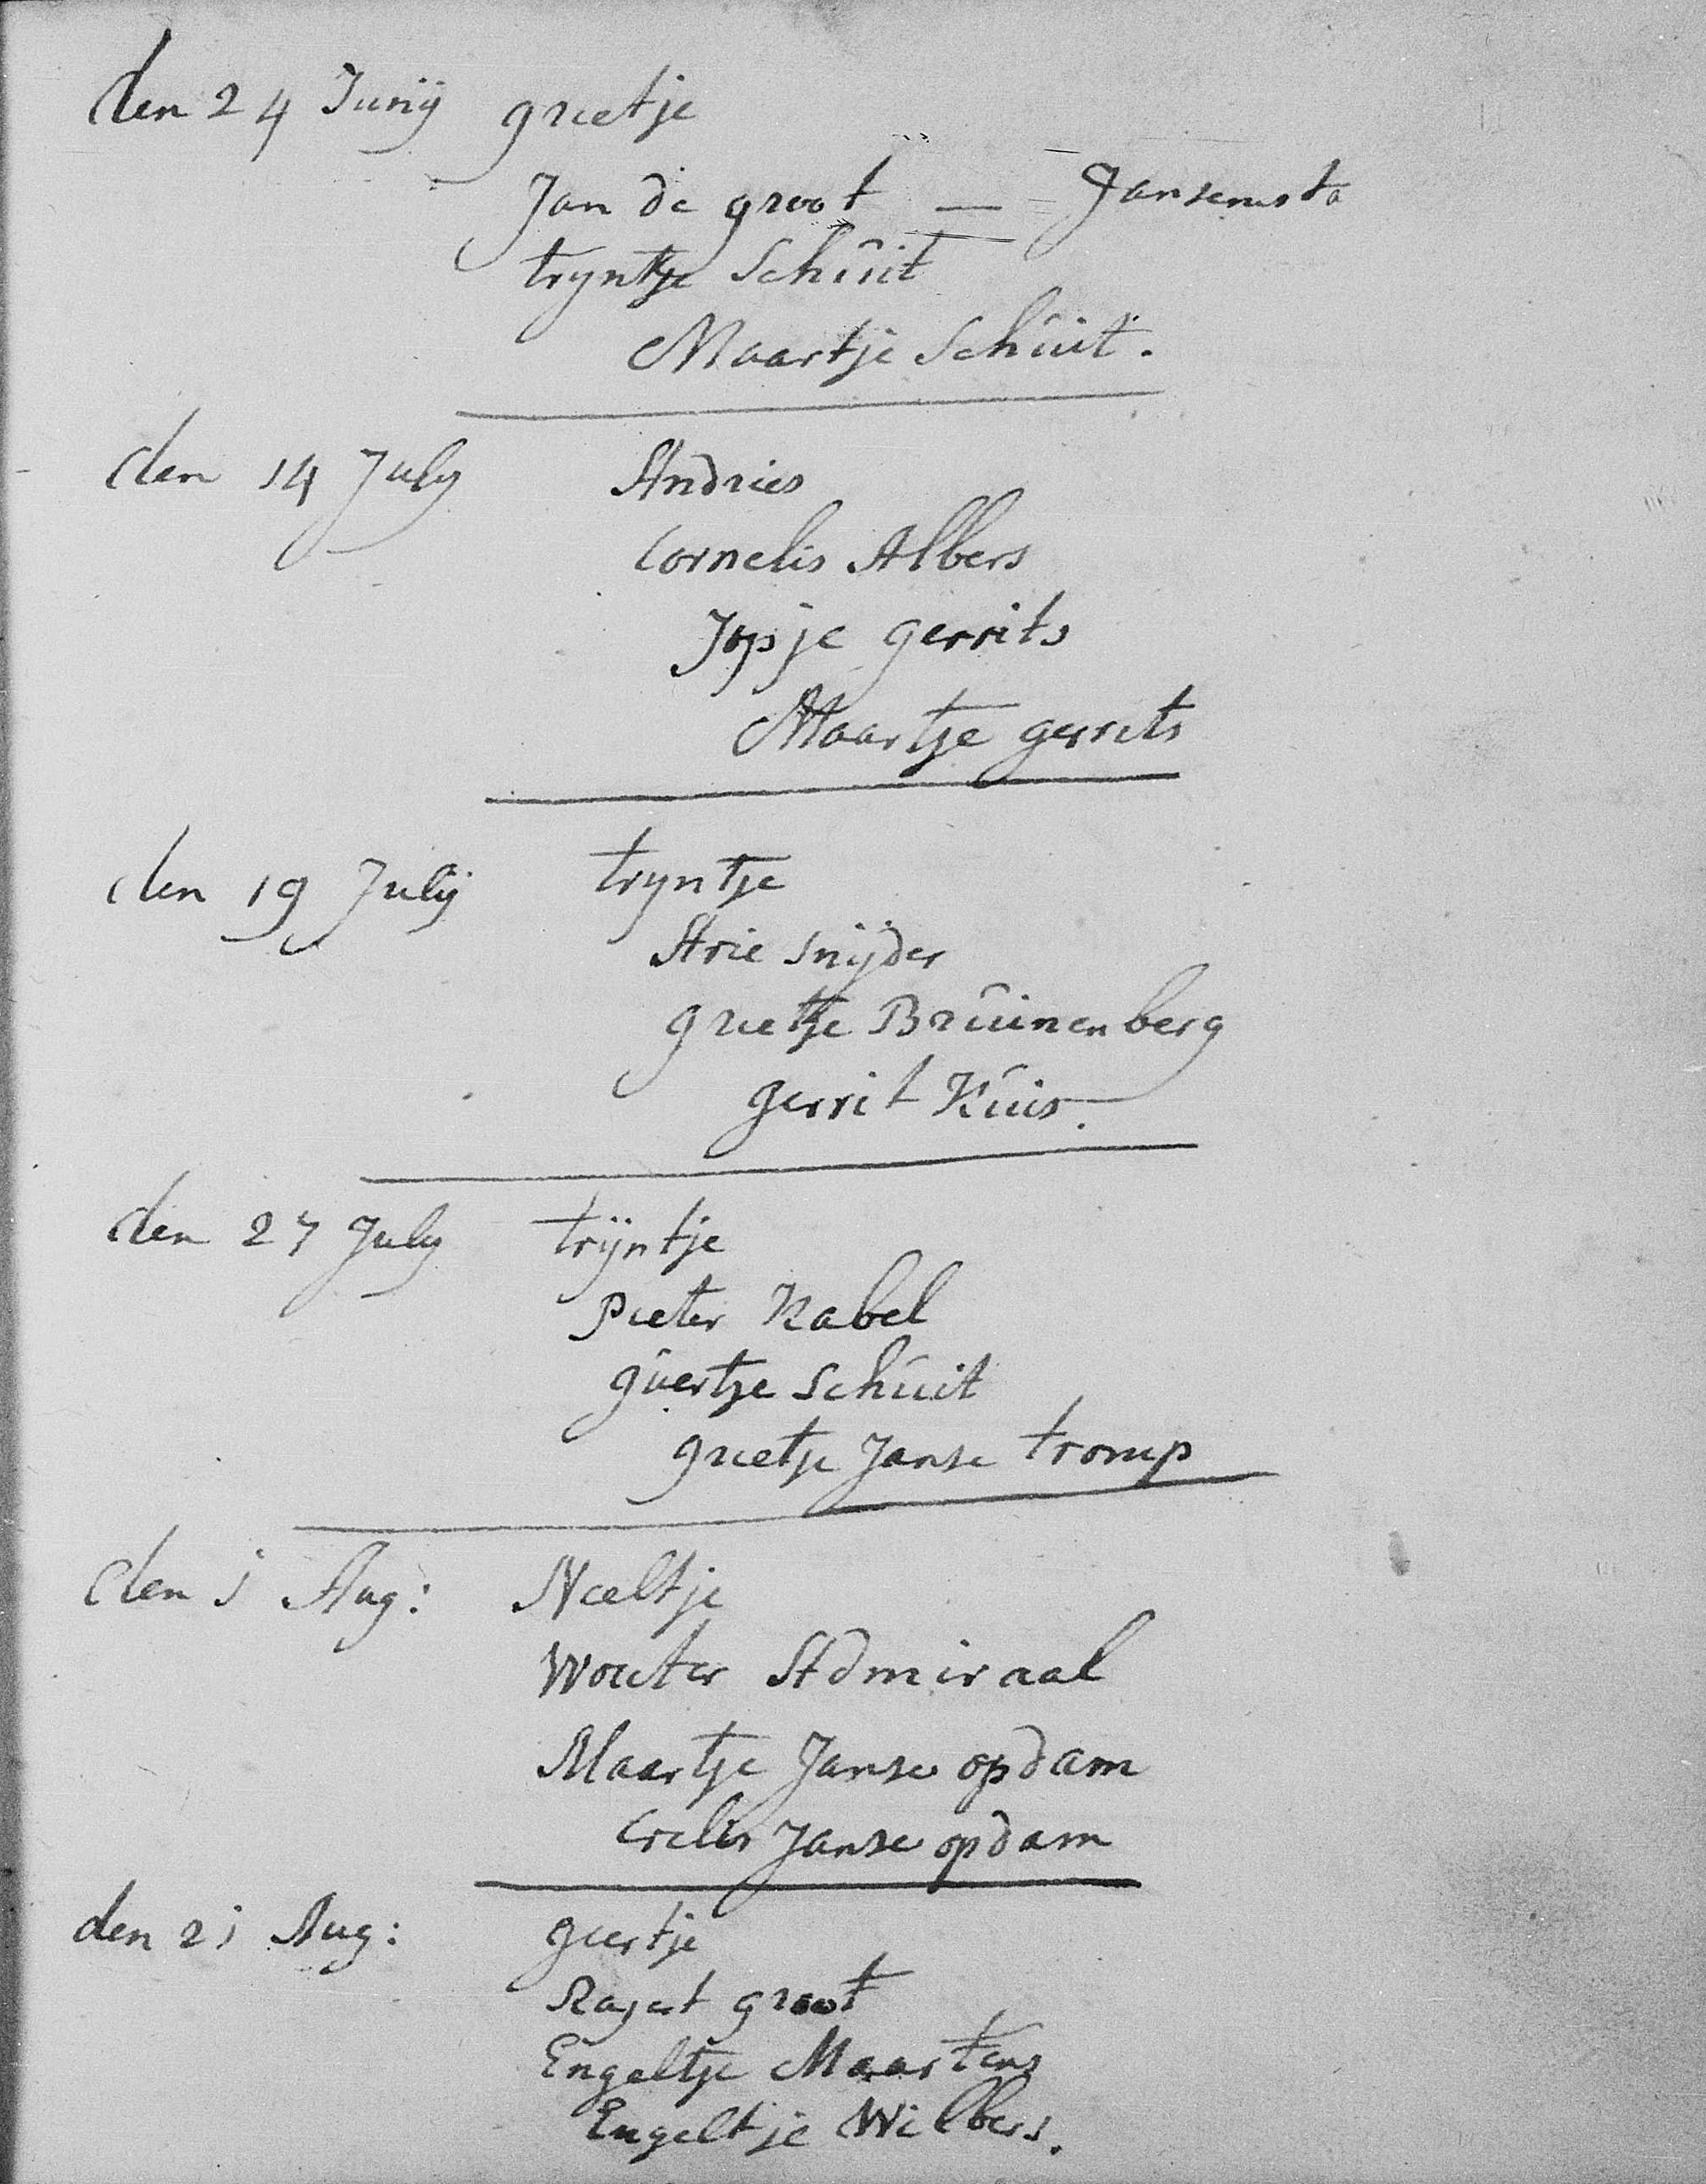 den 24 Junij grietje
Jan de groot — Jansenista
tryntje Schûit
Maartje Schûit.
den 14 July Andries
Cornelis Albers
Jopje gerrits
Maartje gerrits
den 19 Julij tryntje
Arie snijder
grietje Brûinenberg
gerrit Kûis.
den 27 July trijntje
Pieter Kabel
gûertje schûit
grietje Janse tromp
den j Aug: Neeltje
Wouter Admiraal
Maartje Janse opdam
Crelis Janse opdam
den 2j Aug: geertje
groot
Engeltje Maartens
Engeltje Wilbers.